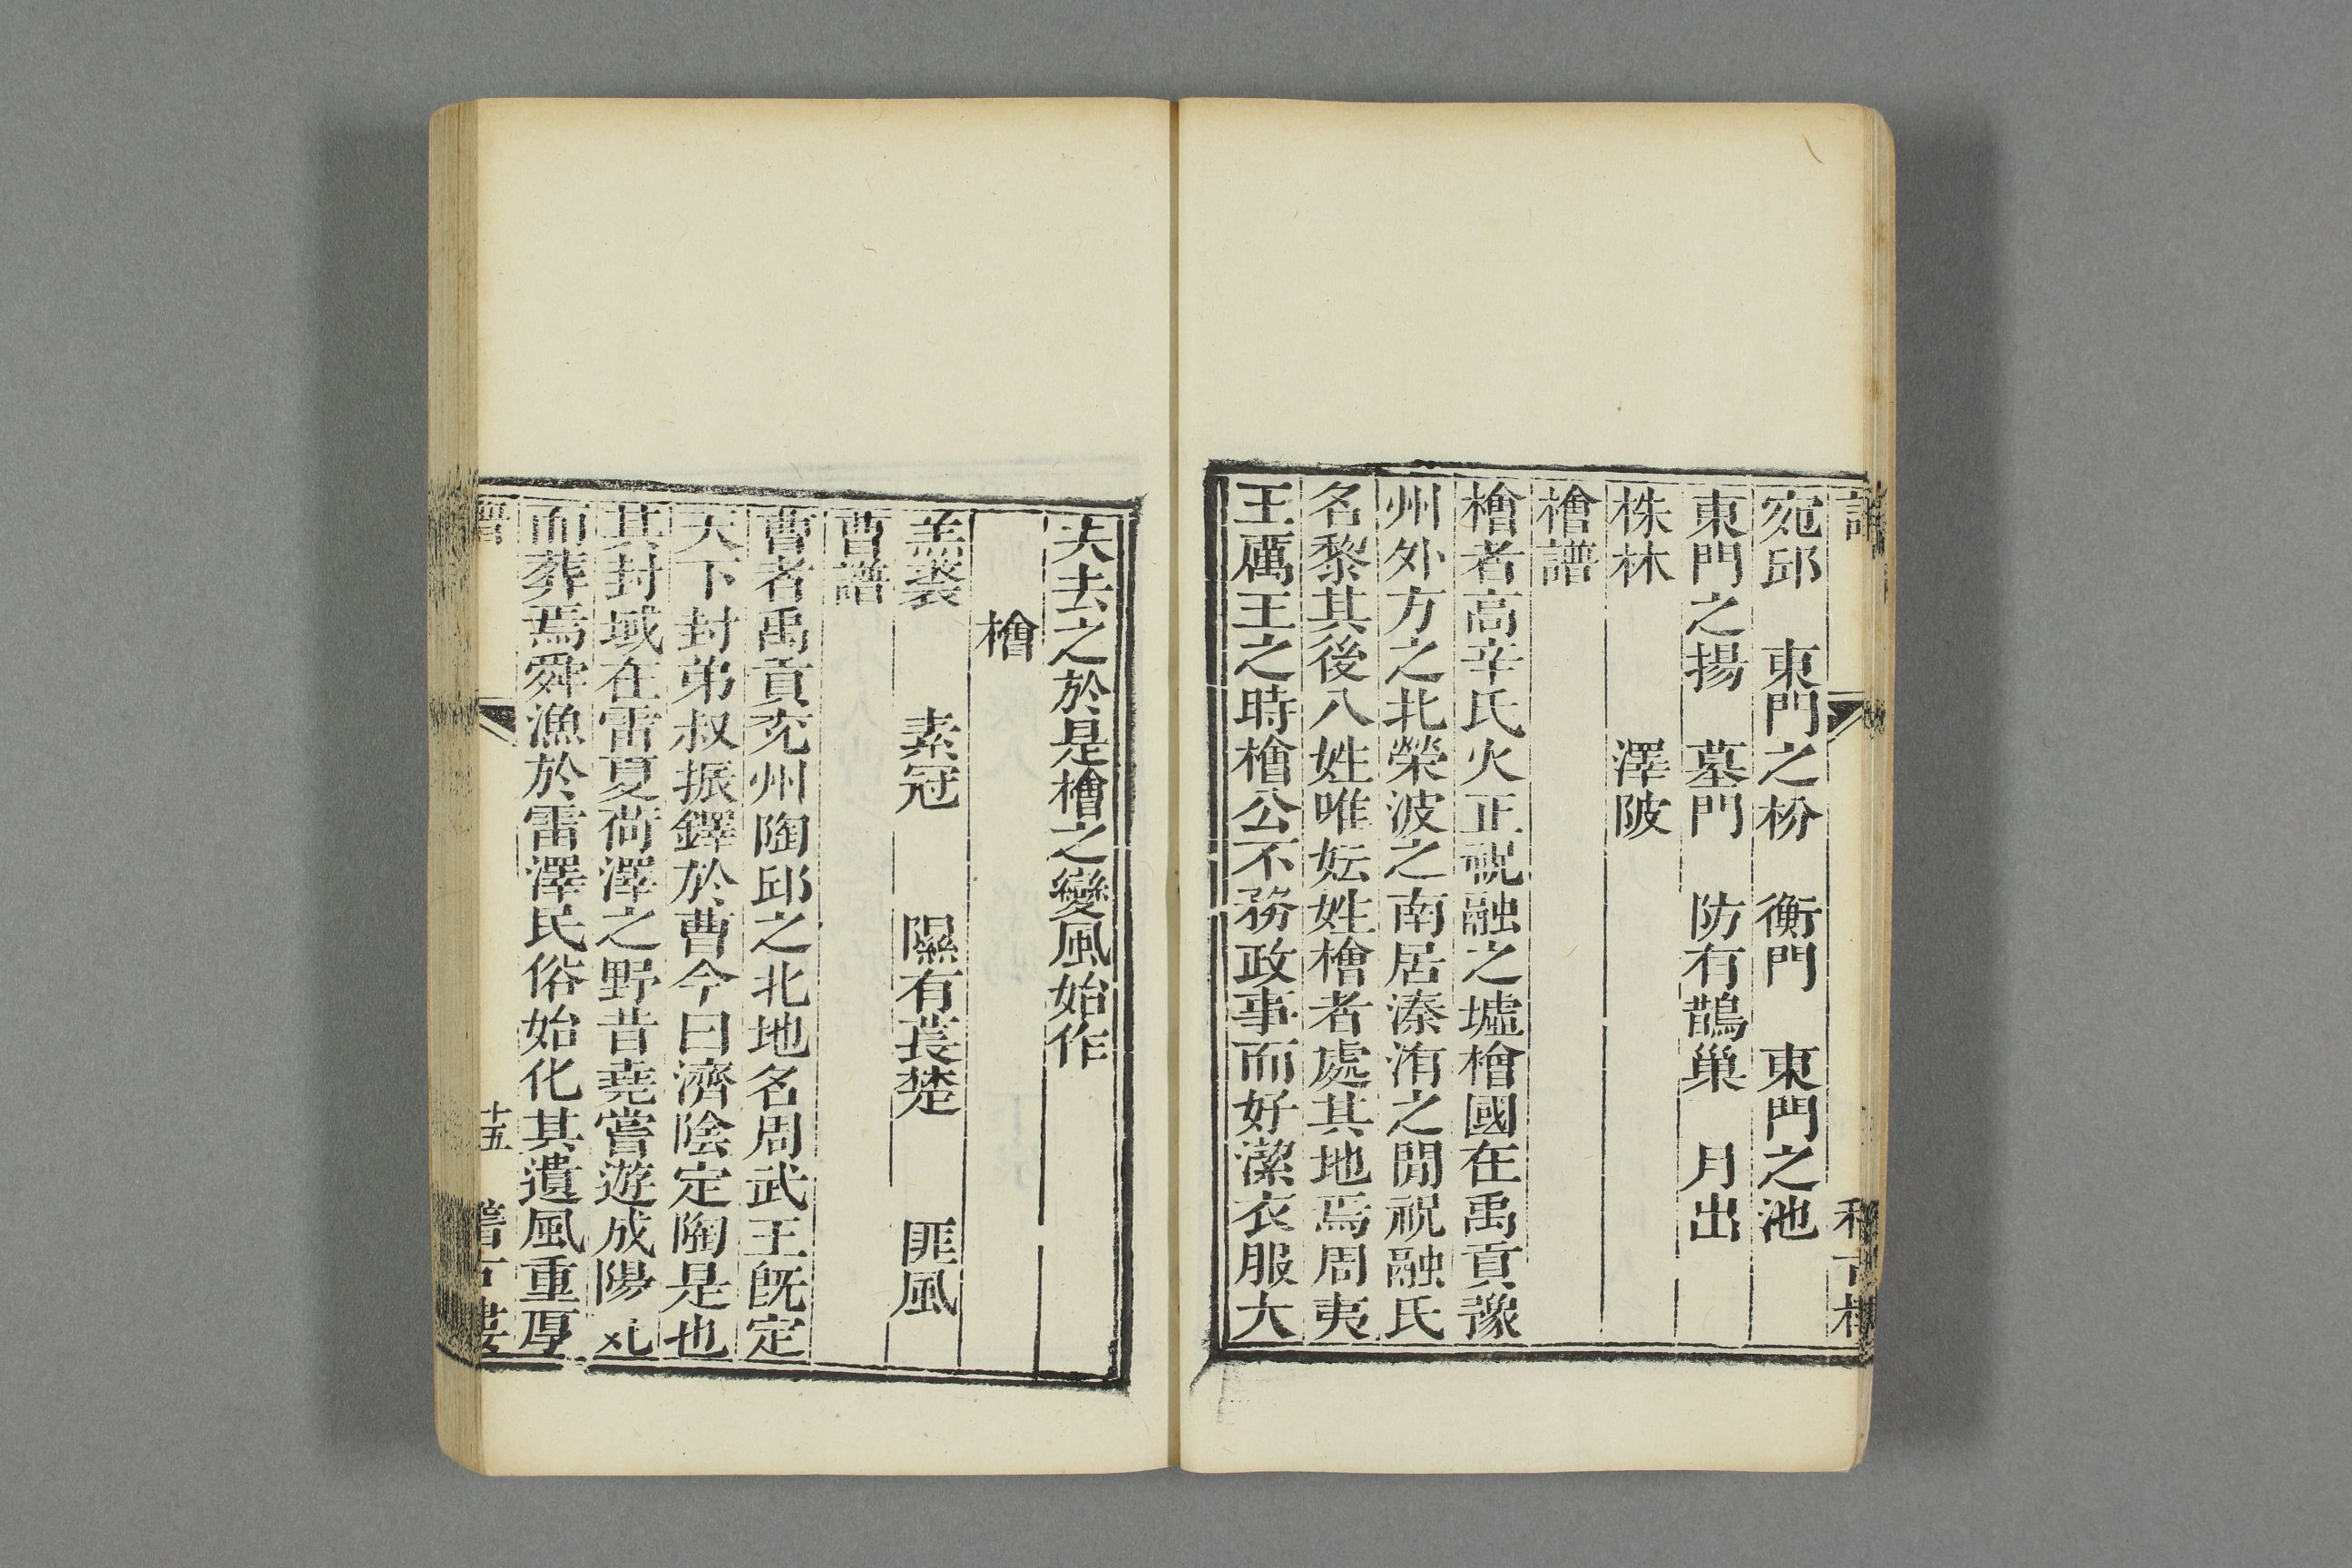 宛邱　東門之枌　衡門　東門之池
東門之揚　墓門　防有鵲巢　月出
株林　澤陂
檜譜
檜者高辛氏火正祝融之墟檜國在禹貢豫
州外方之北滎波之南居溱洧之閒祝融氏
名黎其後八姓唯妘姓檜者處其地焉周夷
王厲王之時檜公不務政事而好潔衣服大
夫去之於是檜之變風始作
檜
羔裘　素冠　隰有萇楚　匪風
曹譜
曹者禹貢兖州陶邱之北地名周武王旣定
天下封弟叔振鐸於曹今曰濟陰定陶是也
其封域在雷夏荷澤之野昔堯嘗遊成陽
而葬焉舜漁於雷澤民俗始化其遺風重厚
譜
十五